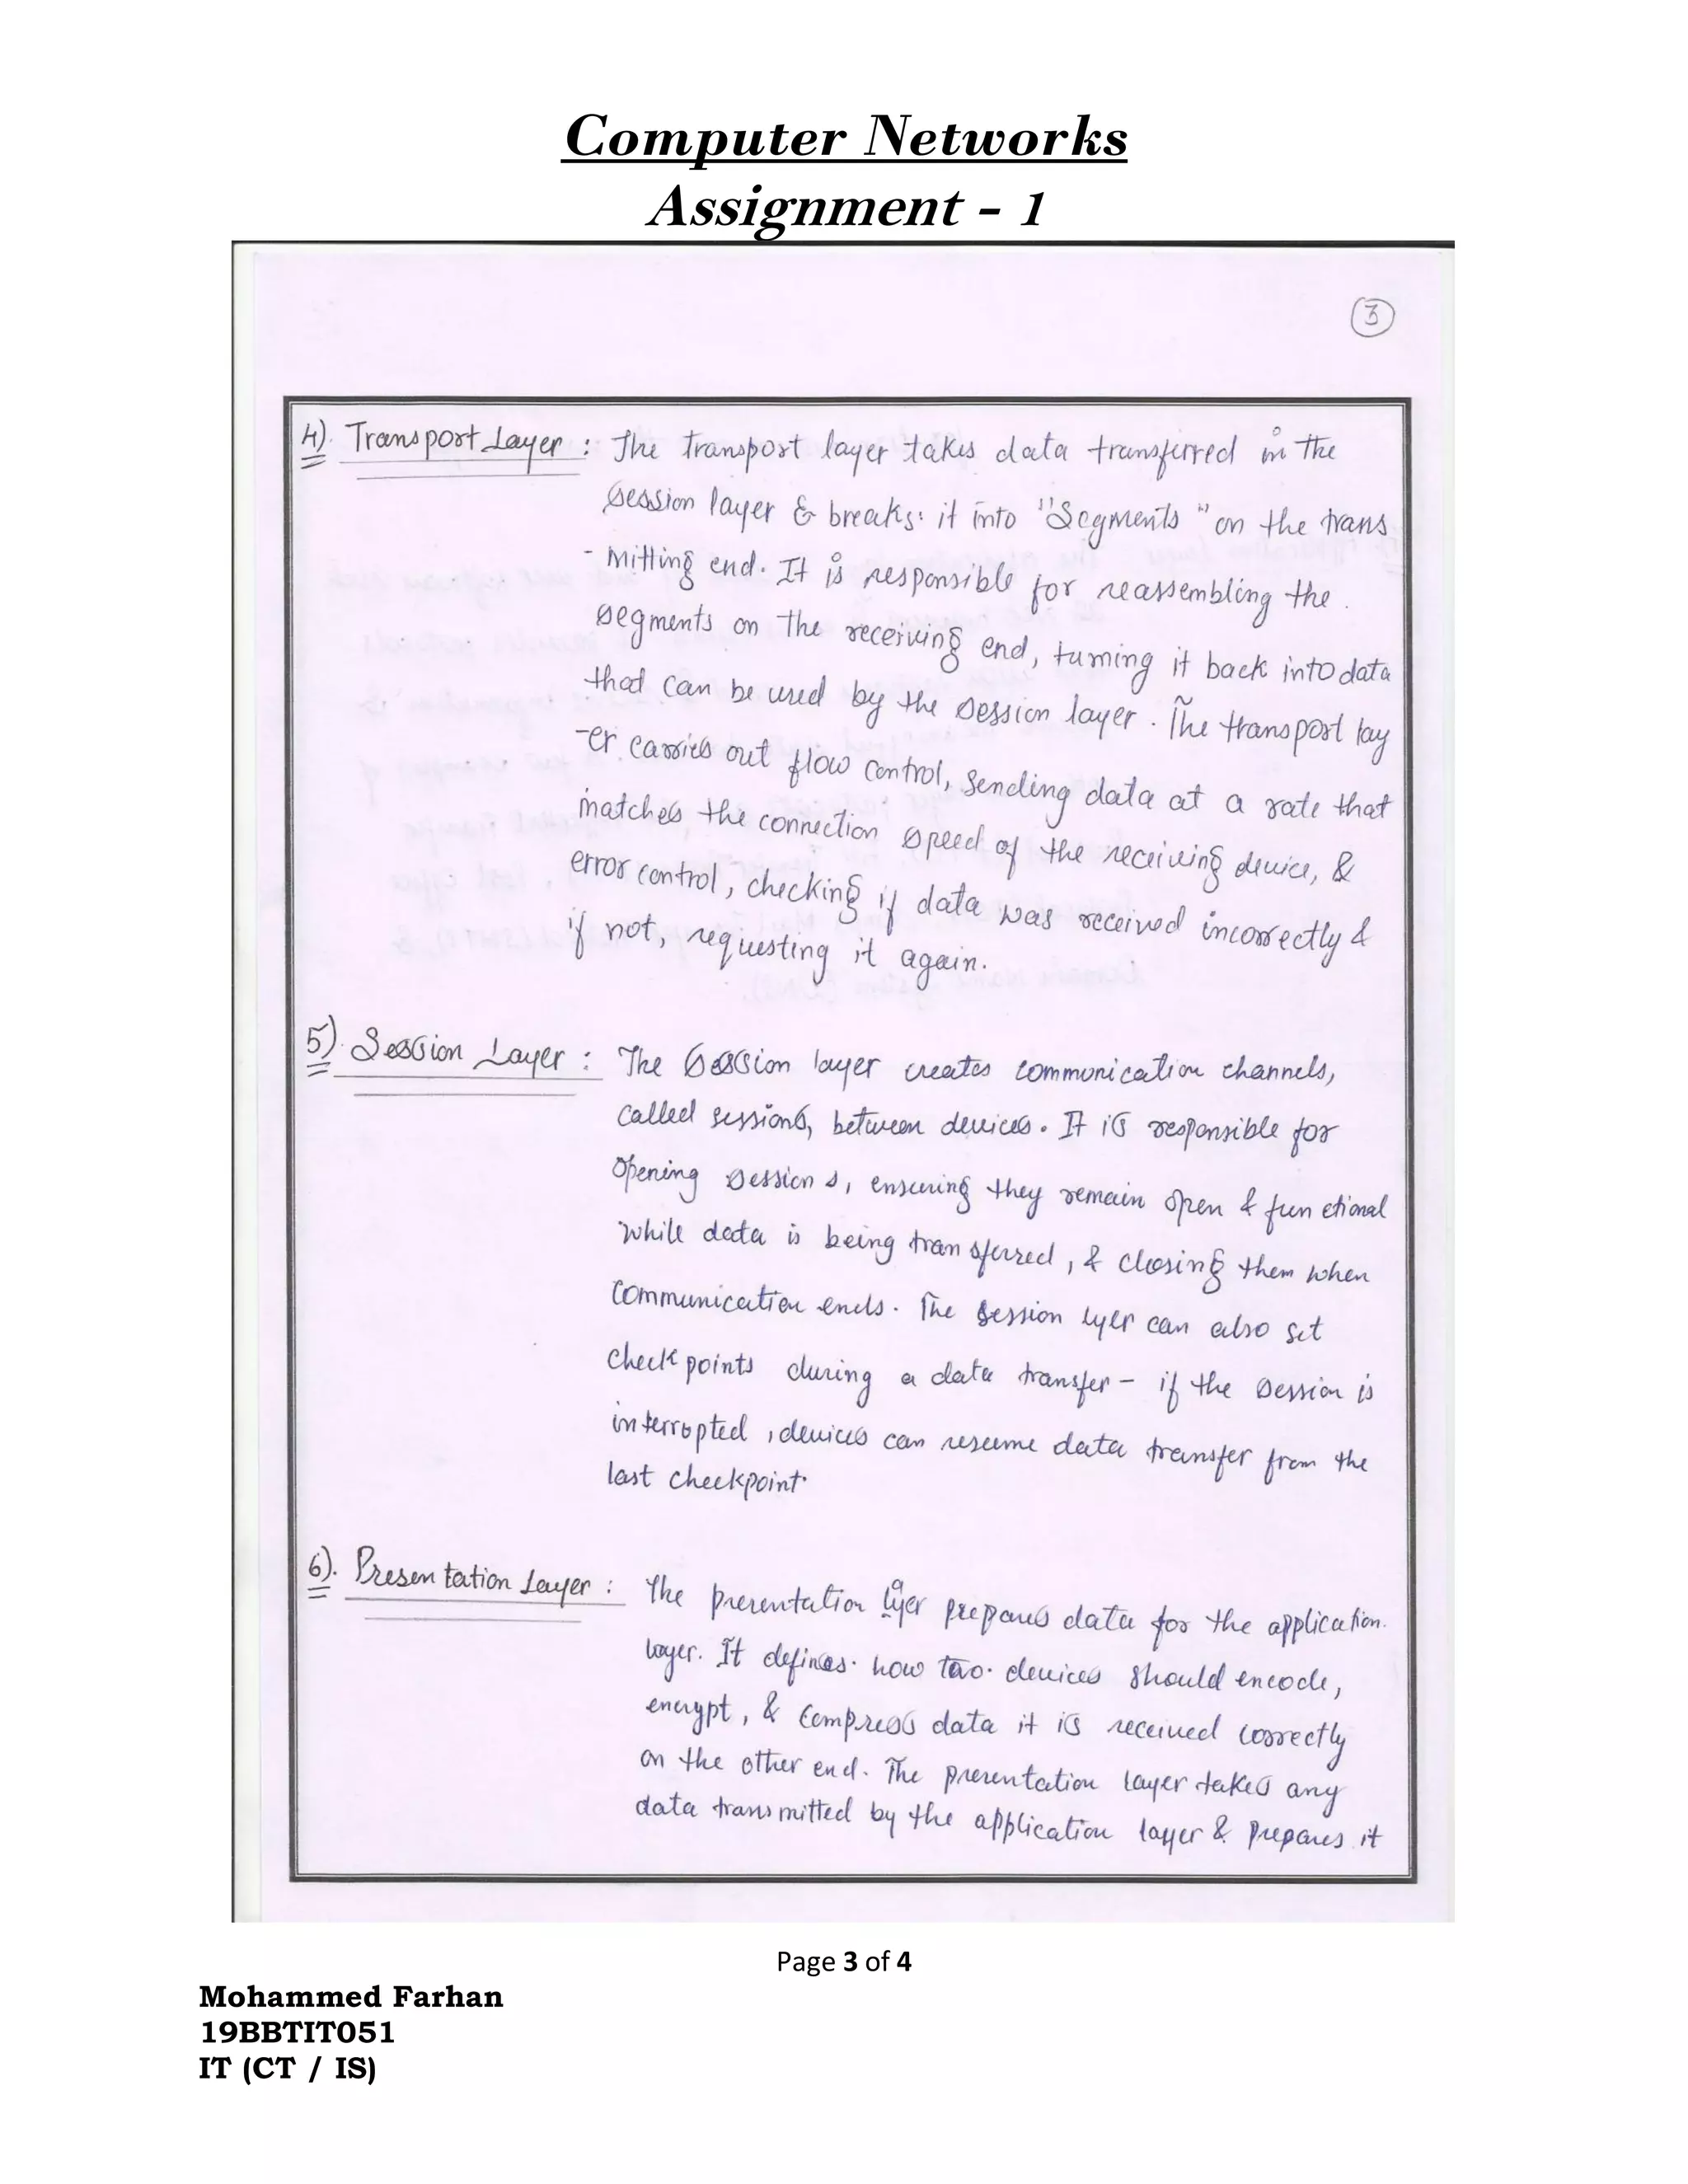 Computer Networks
Assignment - 1
3
4). Transport Layer : The transport layer takes data transferred in the
session layer & breaks it into "Segments" on the trans
- mitting end. It is responsible for reassembling the
segments on the receiving end, turning it back into data
that can be used by the session layer. The transport lay
-er carries out flow control, sending data at a rate that
matches the connection speed of the receiving device, &
error control, checking if data was received incorrectly &
if not, requesting it again.
5). Session Layer : The Session layer creates communication channels,
called sessions, between devices. It is responsible for
opening sessions, ensuring they remain open & functional
while data is being transferred, & closing them when
communication ends. The session lyer can also set
checkpoints during a data transfer - if the session is
interrupted, devices can resume data transfer from the
last checkpoint.
6). Presentation Layer : The presentation layer prepares data for the application
layer. It defines how two devices should encode,
encrypt, & compress data it is received correctly
on the other end. The presentation layer takes any
data transmitted by the application layer & prepares it
Page 3 of 4
Mohammed Farhan
19BBTIT051
IT (CT / IS)